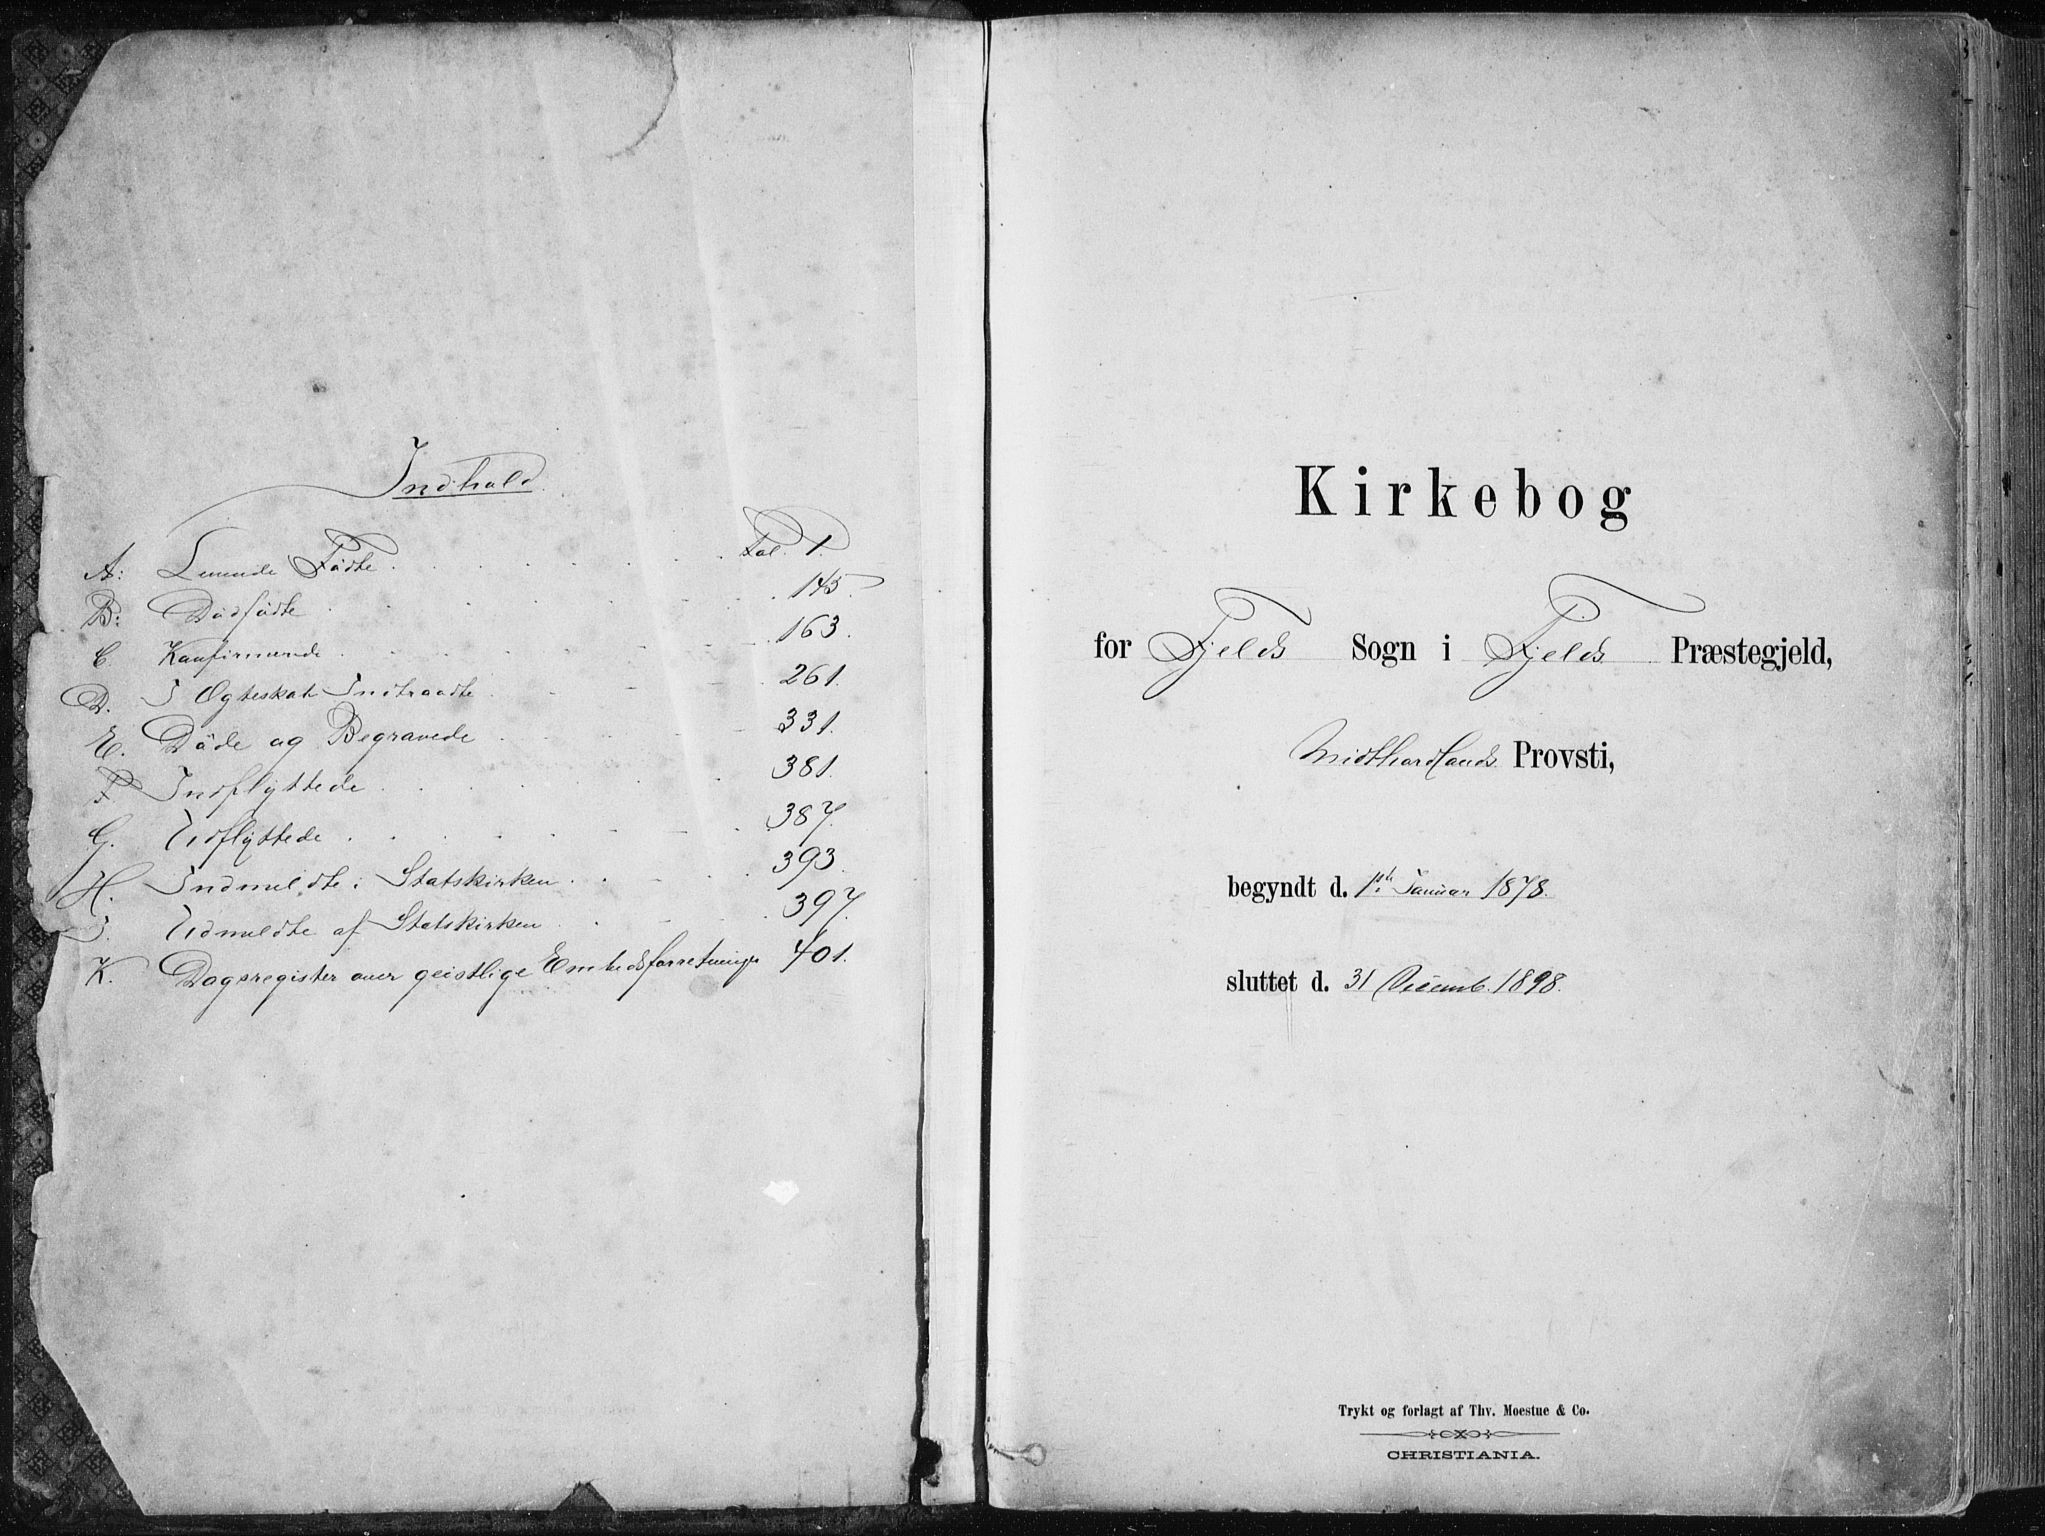 Indhold
A: Levende Fødte . . . . . . . Fol. 1.
B: Dødfødte . . . . . . . 145.
C. Konfirmerede . . . . . . . 163.
D. I Ægteskab Indtraadte . . . . 261.
E. Døde og Begravede . . . . 331.
F. Indflyttede . . . . . . 381.
G. Udflyttede . . . . . . 387.
H. Indmeldte i Statskirken . . . . 393.
I. Udmeldte af Statskirken . . . 397.
K. Dagsregister over geistlige Embedsforretninger 401.
Kirkebog
for Fjelds Sogn i Fjelds Præstegjeld,
Midthordlands Provsti,
begyndt d. 1ste Januar 1878.
sluttet d. 31 Decemb. 1898.
Trykt og forlagt af Thv. Moestue & Co.
CHRISTIANIA.